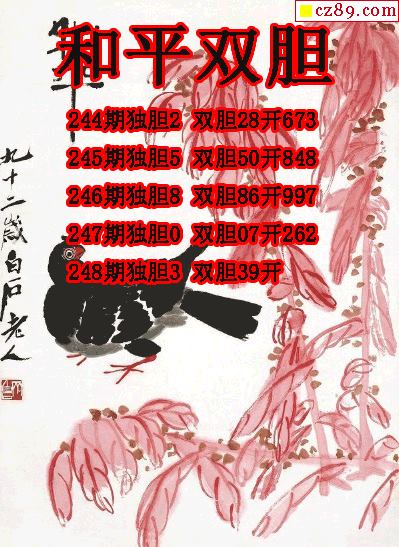 cz89.com
和平双胆
244期独胆2 双胆28开673
245期独胆5 双胆50开848
246期独胆8 双胆86开997
247期独胆0 双胆07开262
248期独胆3 双胆39开
九十二岁白石老人